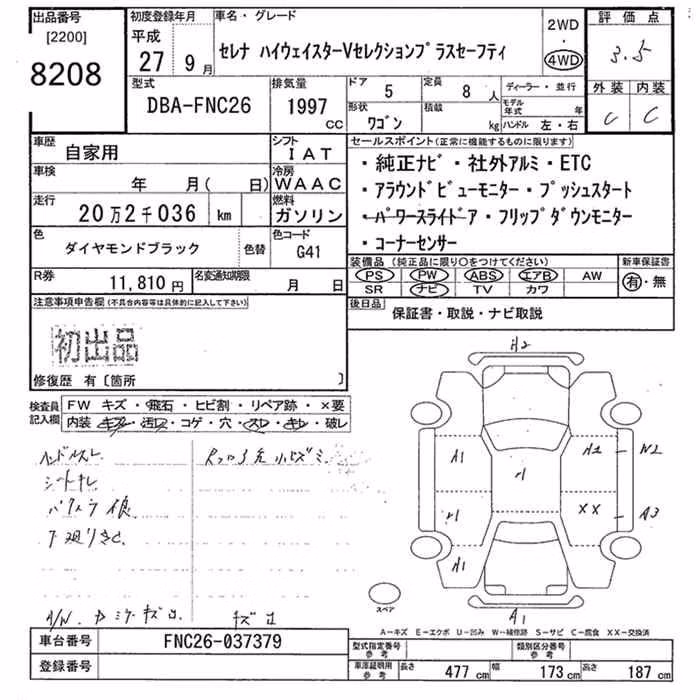 出品番号 初度登録年月 車名・グレード 評価点
[2200] 平成 2WD
8208 27 9月 セレナ ハイウェイスターVセレクションプラスセーフティ ・ 3.5
4WD
型式 排気量 ドア 5 定員 8 人 ディーラー・並行 外装 内装
DBA-FNC26 1997 cc 形状 ワゴン 積載 kg モデル年式 年 C C
ハンドル 左・右
車歴 自家用 シフト IAT セールスポイント(正常に機能するものに限ります)
車検 年 月( 日) 冷房 WAAC ・純正ナビ・社外アルミ・ETC
走行 20万2千036 km 燃料 ガソリン ・アラウンドビューモニター・プッシュスタート
・パワースライドドア・フリップダウンモニター
色 ダイヤモンドブラック 色替 色コード G41 ・コーナーセンサー
装備品(純正品に限り〇をつけてください) 新車保証書
R券 11,810円 名変通知期限 月 日 PS PW ABS エアB AW 有・無
SR ナビ TV カワ
注意事項申告欄(不具合内容等は具体的に記入して下さい) 後日品 保証書・取説・ナビ取説
初出品
修復歴 有〔箇所 〕
検査員記入欄 FW キズ・飛石・ヒビ割・リペア跡・×要
内装 キズ・汚レ・コゲ・穴・スレ・キレ・破レ
ハンドルスレ
シートキレ
A2
A1 A2 W2
XX A3
A1
スペア
A1
A-キズ E-エクボ U-凹み W-補修跡 S-サビ C-腐食 XX-交換済
車台番号 FNC26-037379 型式指定番号 参考 類別区分番号 参考
登録番号 車庫証明用 参考 長さ 477 cm 幅 173 cm 高さ 187 cm